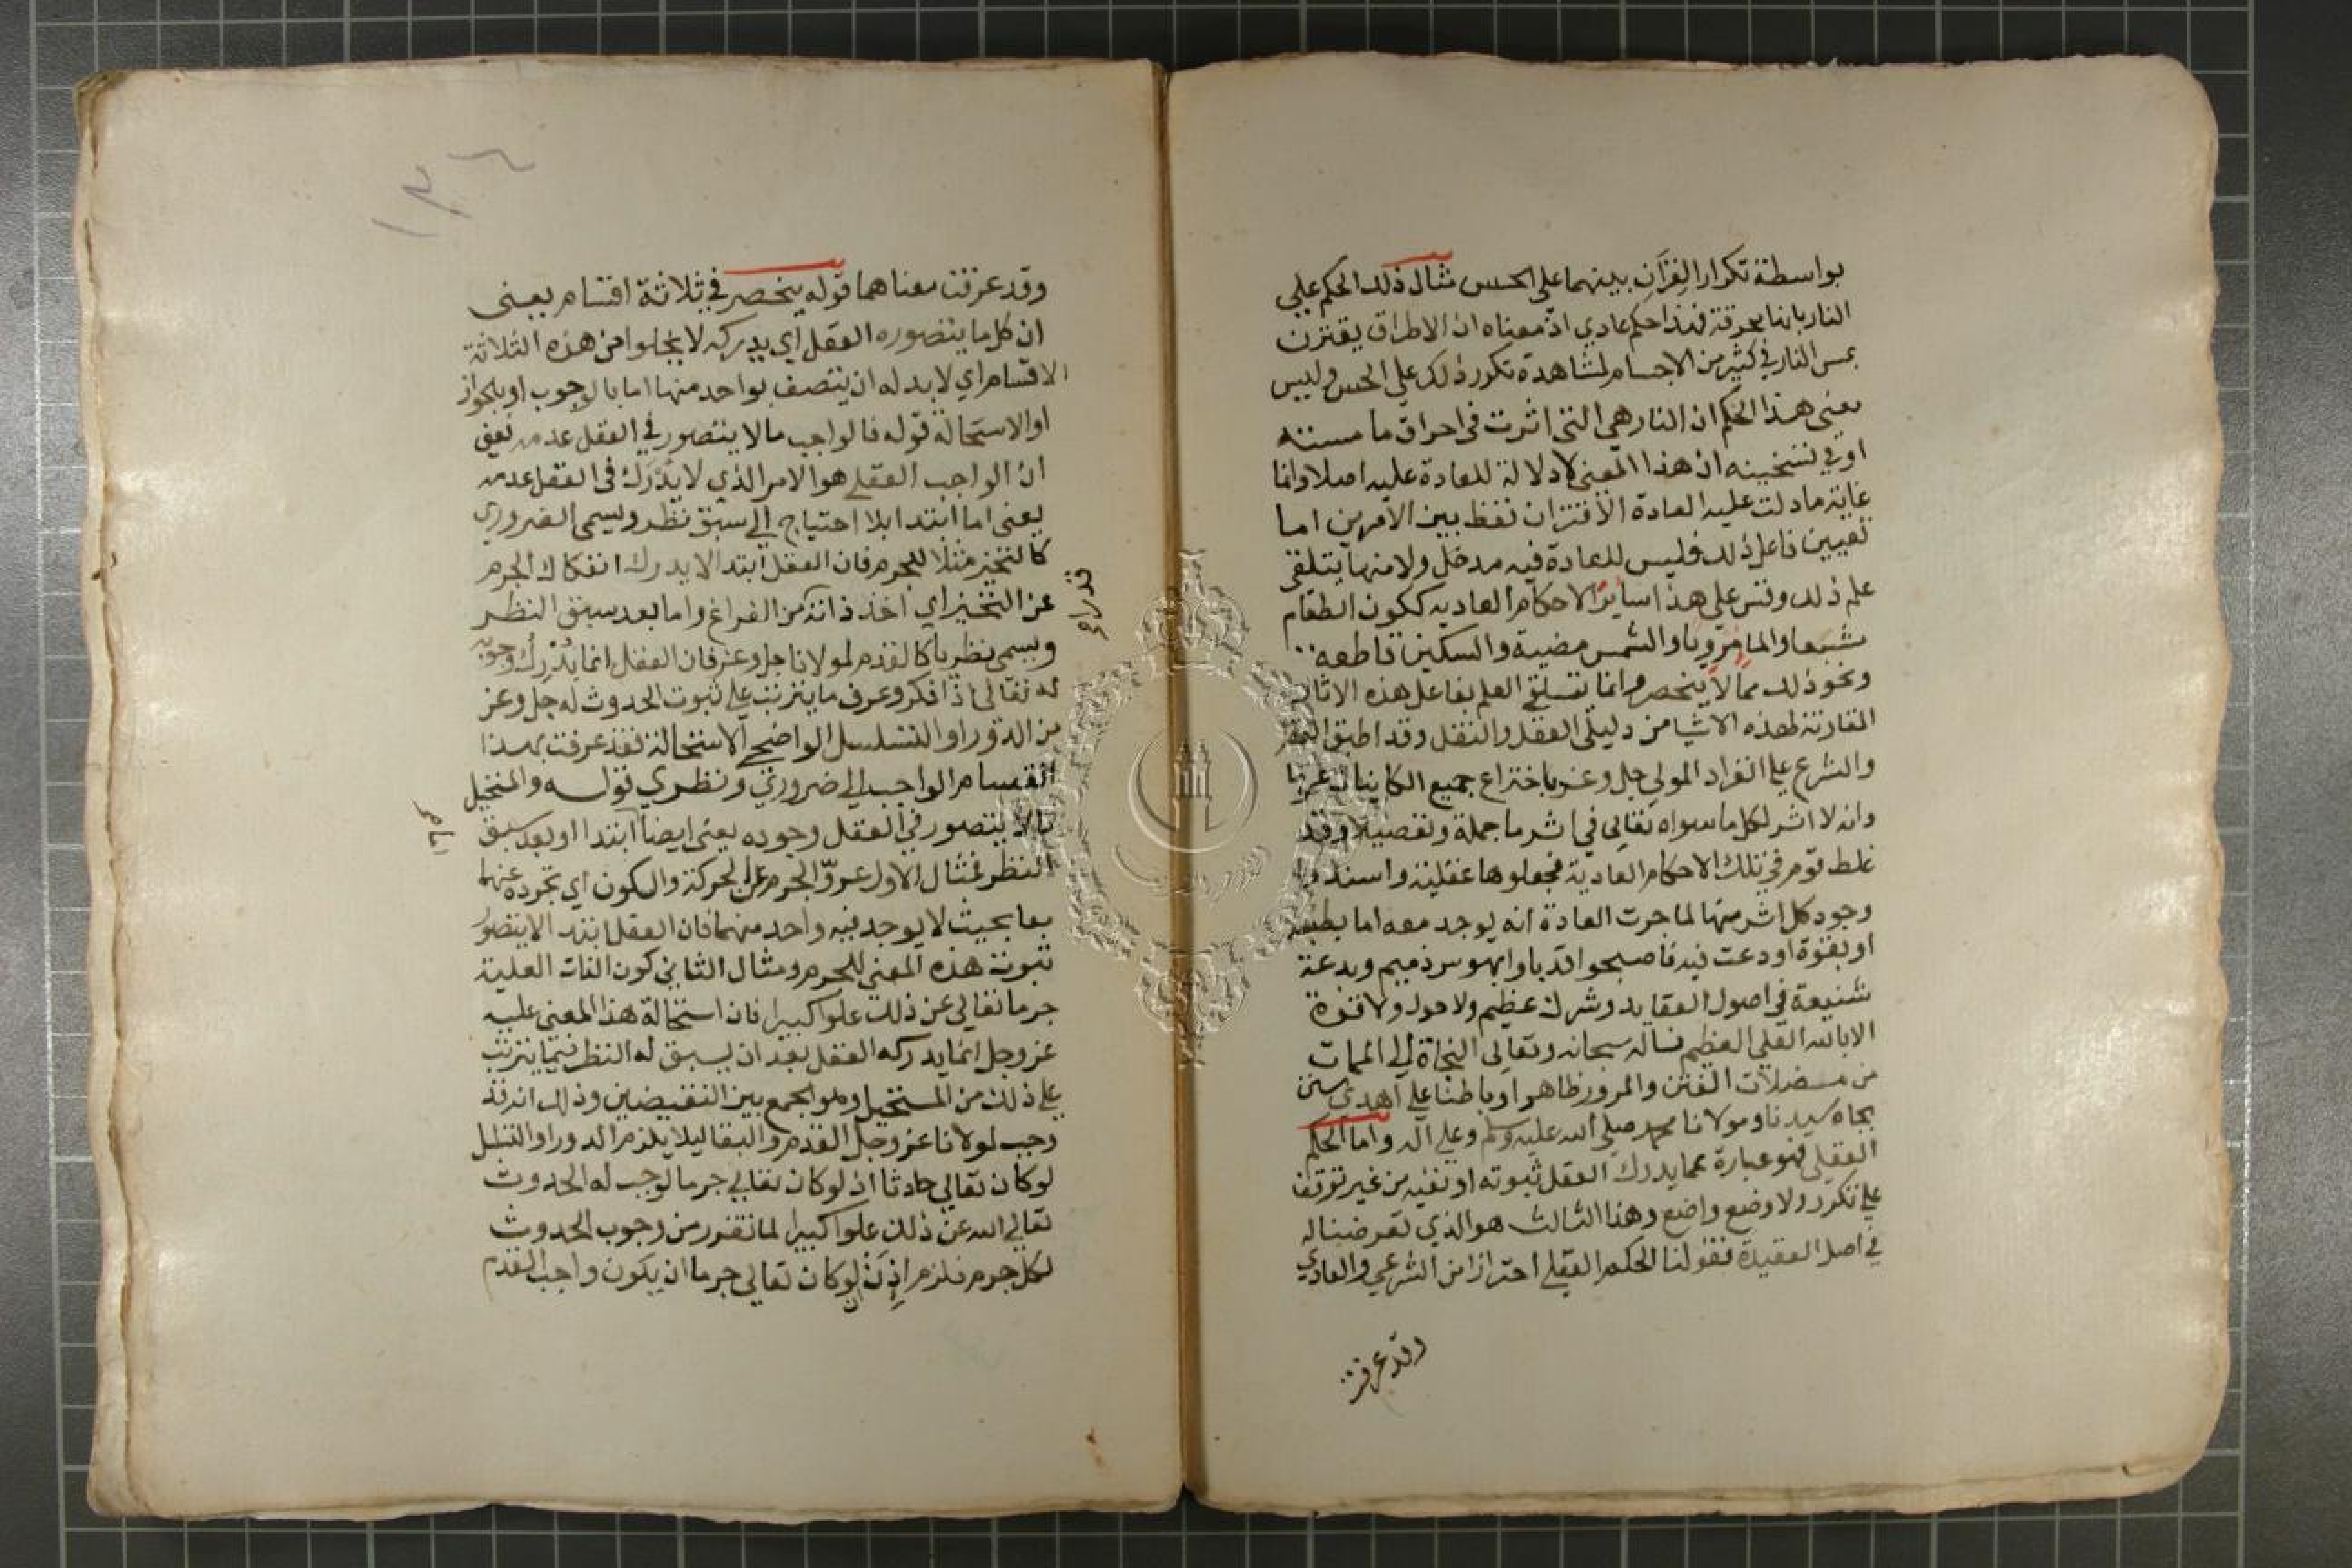 بواسطة تكرار القران بينهما على الحس مثال ذلك الحكم على
النار بانها محرقة فهذا حكم عادي اذ معناه ان الاحراق يقترن
بمس النار في كثير من الاجسام لمشاهدة تكرر ذلك على الحس وليس
معنى هذا الحكم ان النار هي التي اثرت في احراق ما مسته
او في تسخينه اذ هذا المعنى لا دلالة للعادة عليه اصلا وانما
غاية ما دلت عليه العادة الاقتران فقط بين الامرين اما
تعيين فاعل ذلك فليس للعادة فيه مدخل ولا منها يتلقى
علم ذلك وقس على هذا سائر الاحكام العادية ككون الطعام
مشبعا والماء مرويا والشمس مضية والسكين قاطعة
ونحو ذلك مما لا ينحصر وانما يتلقى العلم بفاعل هذه الاثار
المقارنة لهذه الاشيا من دليلي العقل والنقل وقد اطبق العقل
والشرع على انفراد المولى جل وعز باختراع جميع الكاينات عموما
وانه لا اثر لكل ما سواه تعالى في اثر ما جملة وتفصيلا وقد
غلط قوم في تلك الاحكام العادية فجعلوها عقلية واسندوا
وجود كل اثر منها لما جرت العادة انه يوجد معه اما بطبعه
او بقوة اودعت فيه فاصبحوا قد باوا بهوس ذميم وبدعة
شنيعة في اصول العقايد وشرك عظيم ولا حول ولا قوة
الا بالله العلي العظيم نساله سبحانه وتعالى النجاة الى الممات
من مضلات الفتن والمرور ظاهرا وباطنا على اهدى سنن
بجاه سيدنا ومولانا محمد صلى الله عليه وسلم وعلى اله واما الحكم
العقلي فهو عبارة عما يدرك العقل ثبوته او نفيه من غير توقف
على تكرر ولا وضع واضع وهذا الثالث هو الذي تعرضنا له
في اصل العقيدة فقولنا الحكم العقلي احترازا من الشرعي والعادي
وقد عرفت
١٣٦
وقد عرفت معناهما قوله ينحصر في ثلاثة اقسام يعني
ان كل ما يتصوره العقل اي يدركه لا يخلوا من هذه الثلاثة
الاقسام اي لا بد له ان يتصف بواحد منها اما بالوجوب او بالجواز
او الاستحالة قوله فالواجب ما لا يتصور في العقل عدمه يعني
ان الواجب العقلي هو الامر الذي لا يدرك في العقل عدمه
يعني اما ابتدا بلا احتياج الى سبق نظر ويسمى الضروري
كالتحيز مثلا للجرم فان العقل ابتدا لا يدرك انفكاك الجرم
عن التحيز اي اخذ ذاته من الفراغ واما بعد سبق النظر
ويسمى نظريا كالقدم لمولانا جل وعز فان العقل انما يدرك وجوبه
له تعالى اذا فكر وعرف ما يترتب على ثبوت الحدوث له جل وعز
من الدور او التسلسل الواضح الاستحالة فقد عرفت بهذا
انقسام الواجب الى ضروري ونظري قوله والمستحيل
ما لا يتصور في العقل وجوده يعني ايضا ابتدا او بعد سبق
النظر فمثال الاول عرو الجرم عن الحركة والسكون اي تجرده عنهما
معا بحيث لا يوجد فيه واحد منهما فان العقل ابتدا لا يتصور
ثبوت هذه المعنى للجرم ومثال الثاني كون الذات العلية
جرما تعالى عن ذلك علوا كبيرا فان استحالة هذا المعنى عليه
عز وجل انما يدركه العقل بعد ان يسبق له النظر فيما يترتب
على ذلك من المستحيل وهو الجمع بين النقيضين وذلك انه قد
وجب لمولانا عز وجل القدم والبقا ليلا يلزم الدور او التسلسل
لو كان تعالى حادثا اذ لو كان تعالى جرما لوجب له الحدوث
تعالى الله عن ذلك علوا كبيرا لما تقرر من وجوب الحدوث
لكل جرم فلزم اذن ان لو كان تعالى جرما ان يكون واجب القدم